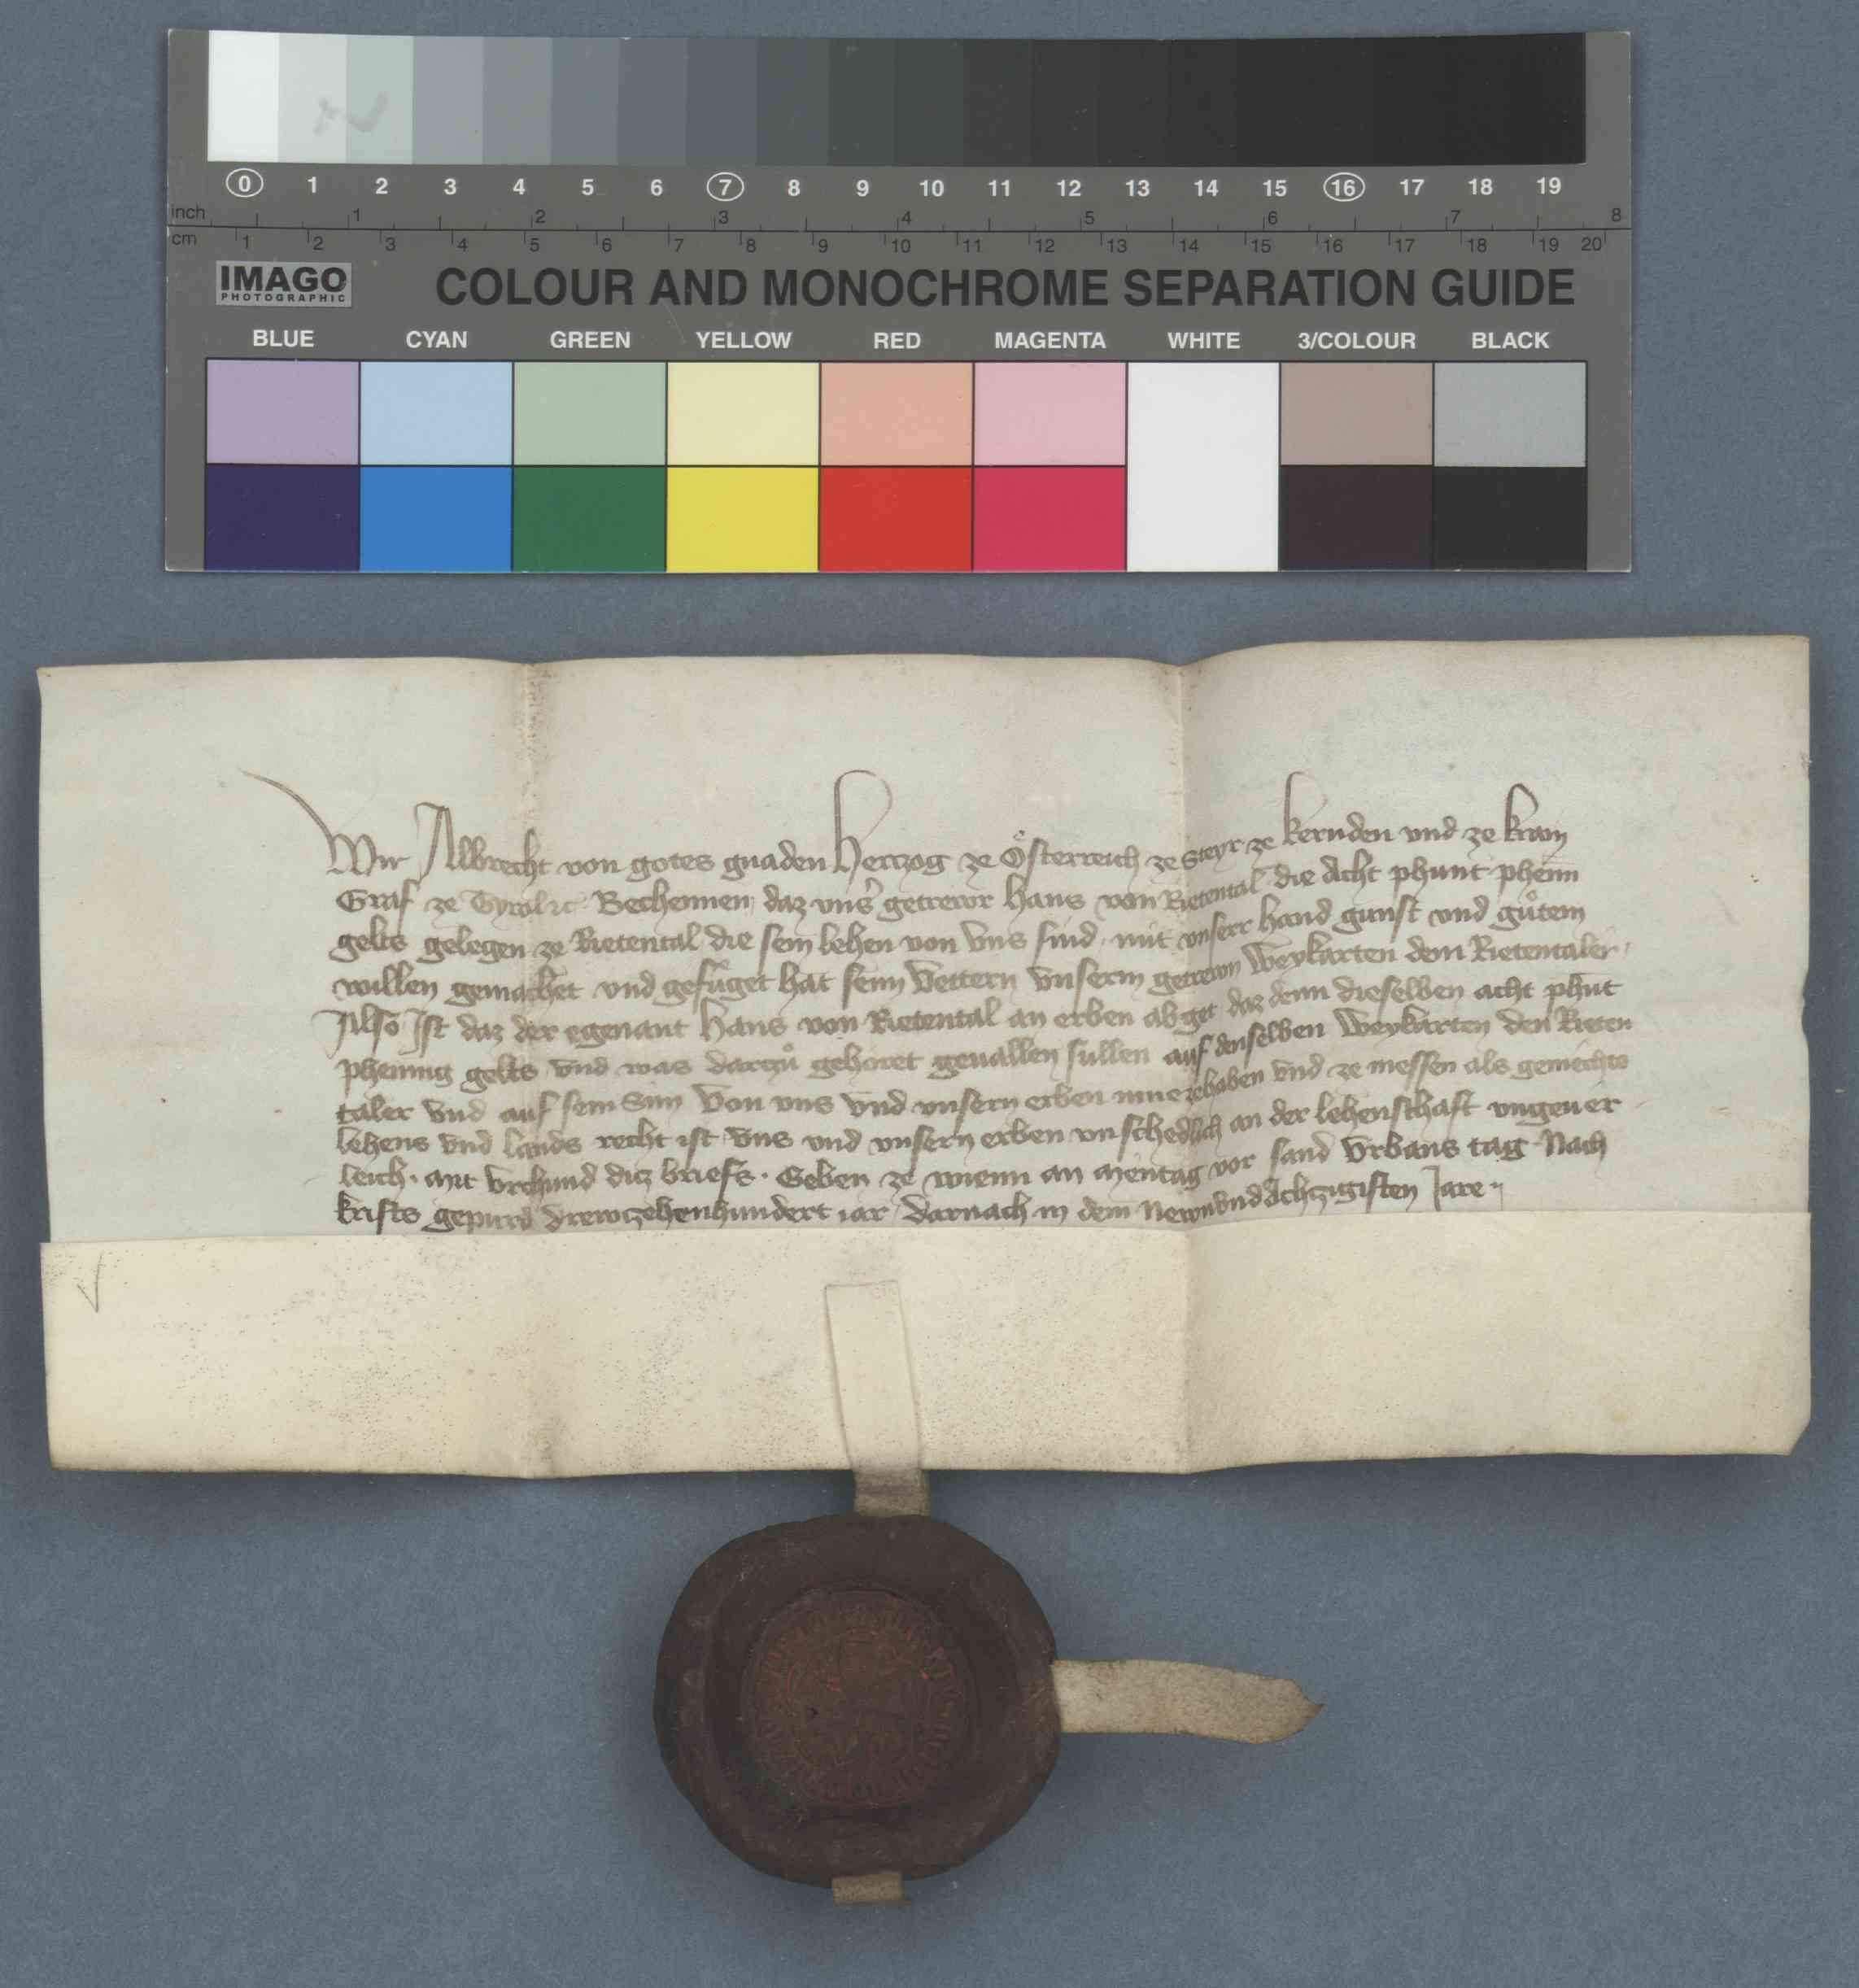 0 1 2 3 4 5 6 7 8 9 10 11 12 13 14 15 16 17 18 19
inch 1 2 3 4 5 6 7 8
cm 1 2 3 4 5 6 7 8 9 10 11 12 13 14 15 16 17 18 19 20
IMAGO
PHOTOGRAPHIC
COLOUR AND MONOCHROME SEPARATION GUIDE
BLUE CYAN GREEN YELLOW RED MAGENTA WHITE 3/COLOUR BLACK
Wir Albrecht von gotes gnaden Hertzog ze Österreich ze Steyr ze kernden vnd ze krain
Graf ze Tyrol ꝛc Bechennen daz vnsˀ getrewr Hans von Rietental die Acht phunt phenn̄
gelts gelegen ze Rietental die sein lehen von vns sind mit vnserr hand gunst vnd gůtem
willen gemachet vnd gefüget hat seim vettern vnserm getrewn Weykarten dem Rietentaler
Also Ist daz der egenant Hans von Rietental an erben abget daz denn dieselben acht phūt
phening gelts vnd was dartzů gehöret geuallen süllen auf denselben Weykarten den Rieten
taler vnd auf sein Sün von vns vnd vnsern erben innezehaben vnd ze niessen als gemechts
lehens vnd lands recht ist vns vnd vnsern erben vnschedlich an der lehenschaft vngeuer
leich. Mit vrchund diz briefs. Geben ze wienn an Mentag vor sand vrbans tag Nach
krists gepurd drewtzehenhundert iar darnach in dem Newnvndachzigisten Jare